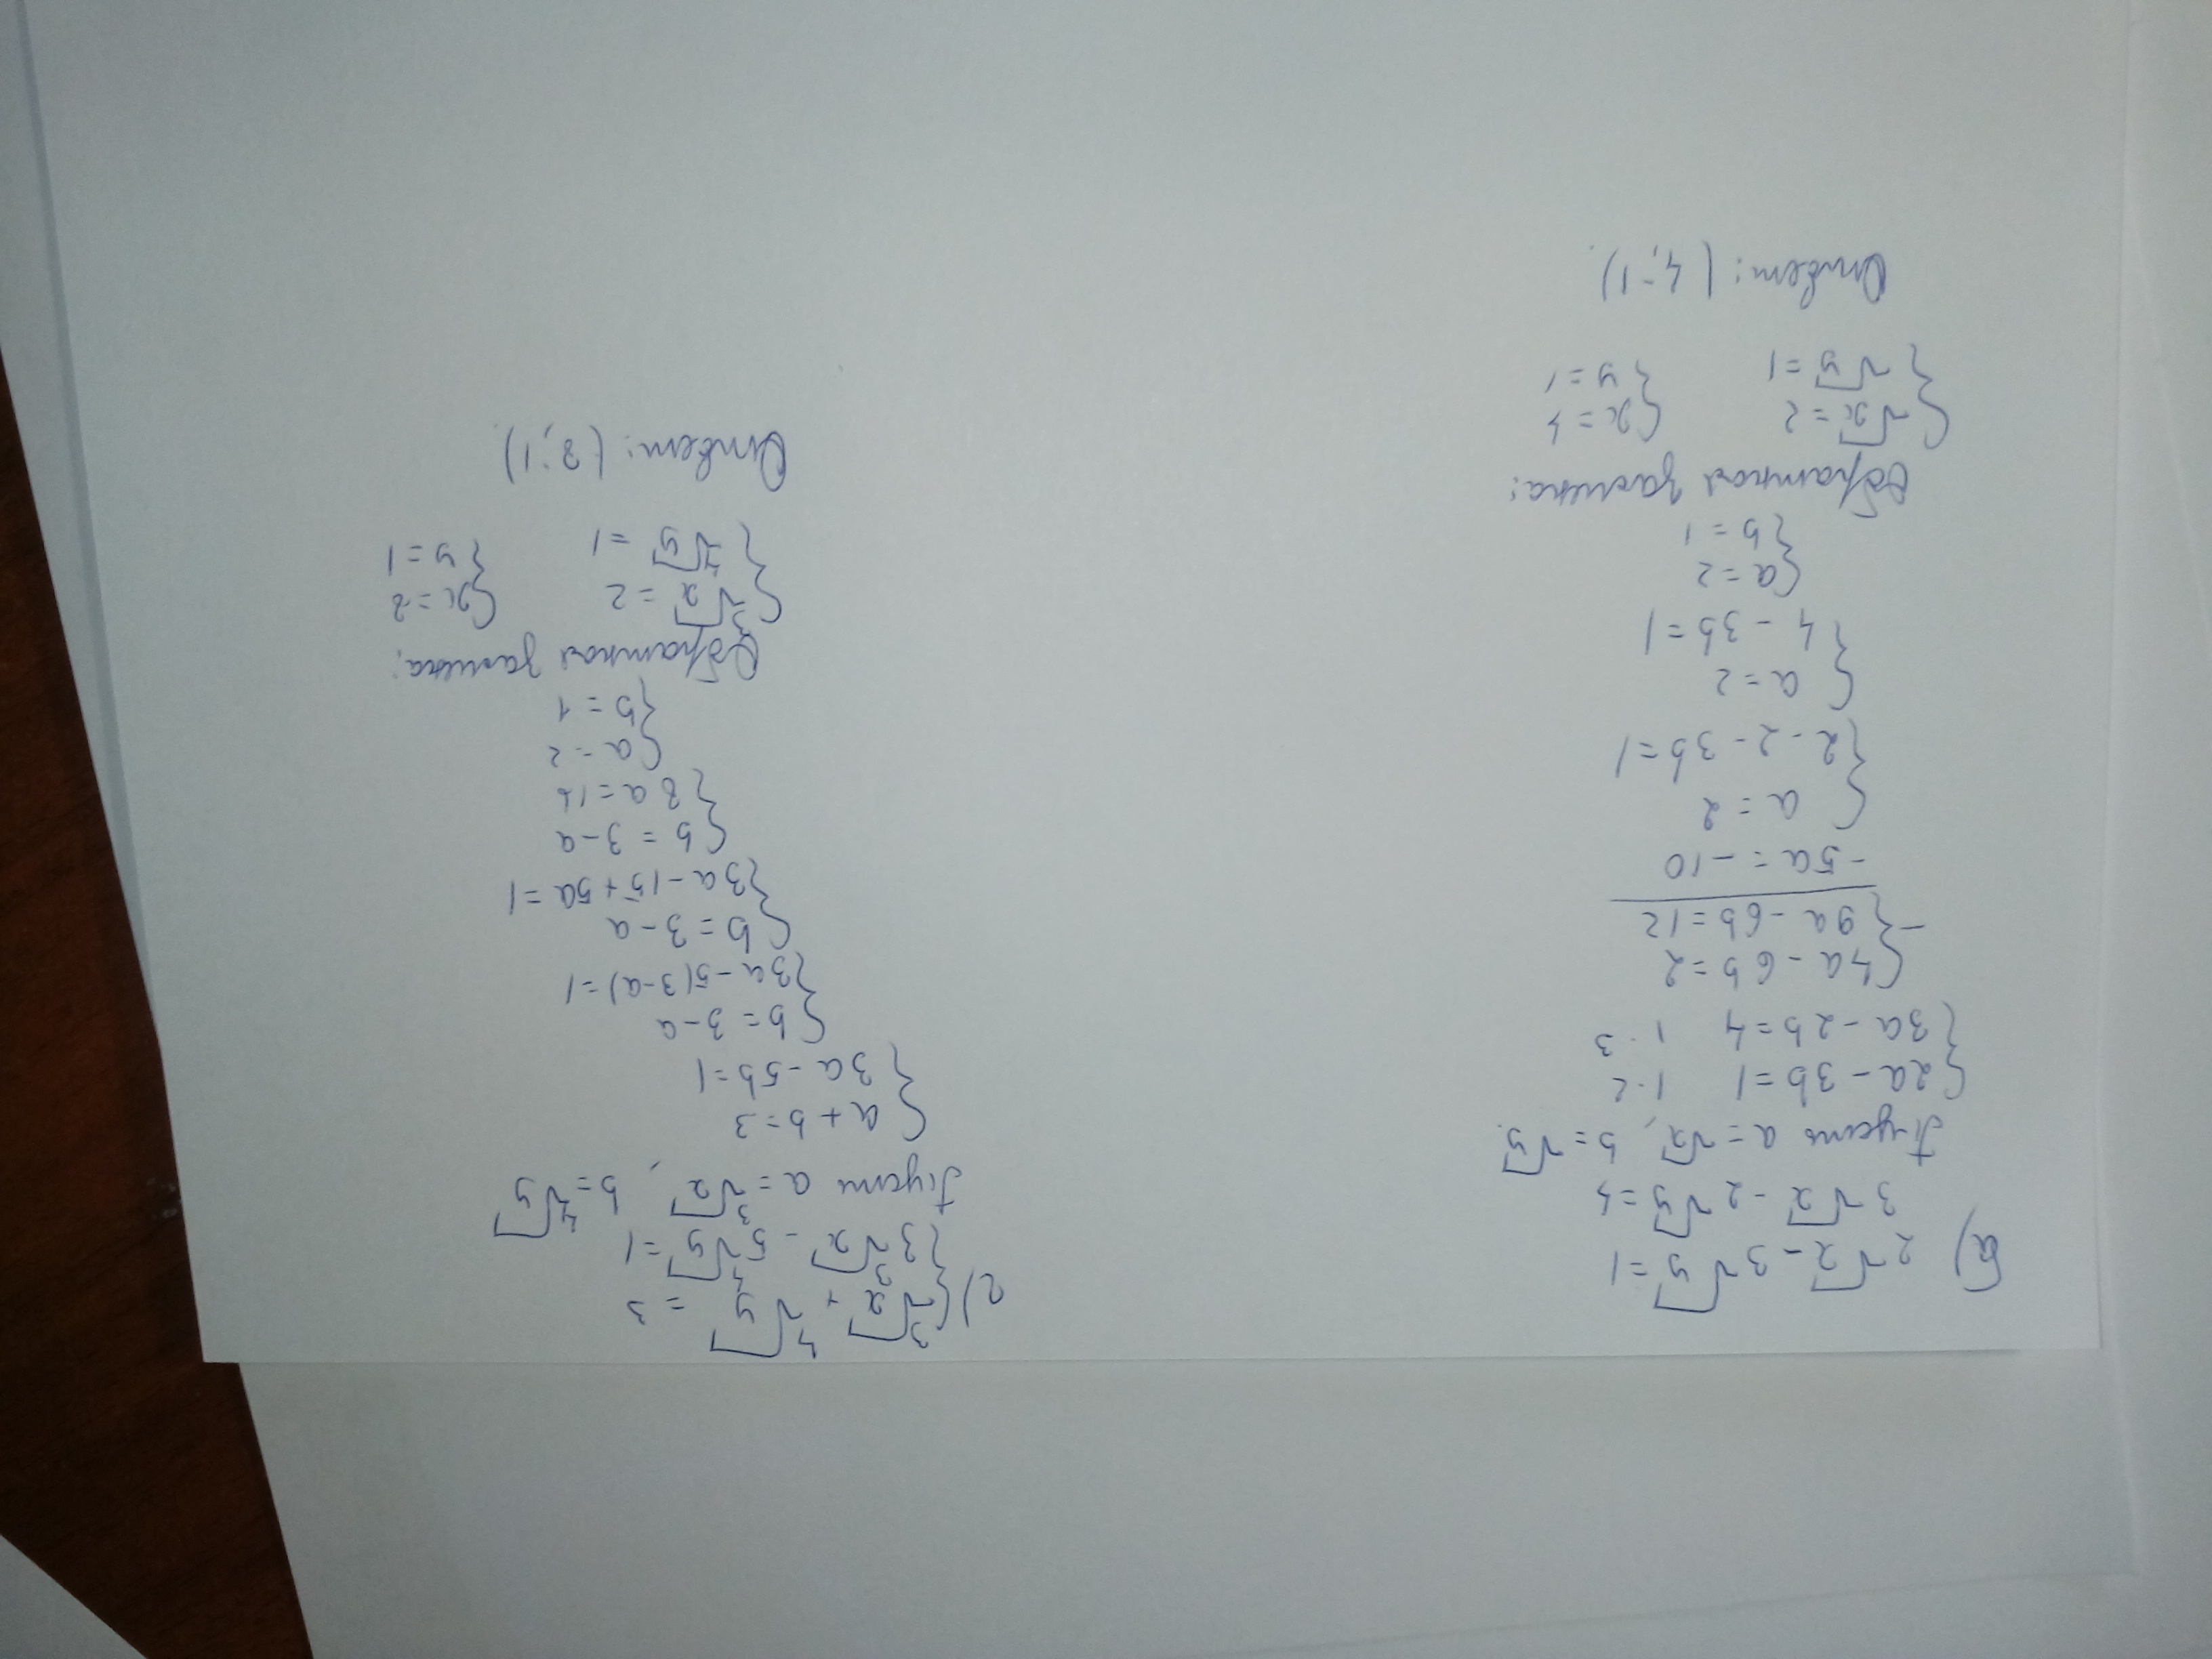 б) 2√x - 3√y = 1
3√x - 2√y = 4
Пусть a = √x, b = √y.
{2a - 3b = 1 | · 2
{3a - 2b = 4 | · 3
{4a - 6b = 2
- {9a - 6b = 12
-5a = -10
{a = 2
{2 · 2 - 3b = 1
{a = 2
{4 - 3b = 1
{a = 2
{b = 1
Обратная замена:
{√x = 2 {x = 4
{√y = 1 {y = 1
Ответ: (4; 1).
г) {∛x + ∜y = 3
{3∛x - 5∜y = 1
Пусть a = ∛x, b = ∜y
{a + b = 3
{3a - 5b = 1
{b = 3 - a
{3a - 5(3 - a) = 1
{b = 3 - a
{3a - 15 + 5a = 1
{b = 3 - a
{8a = 16
{a = 2
{b = 1
Обратная замена:
{∛x = 2 {x = 8
{∜y = 1 {y = 1
Ответ: (8; 1).